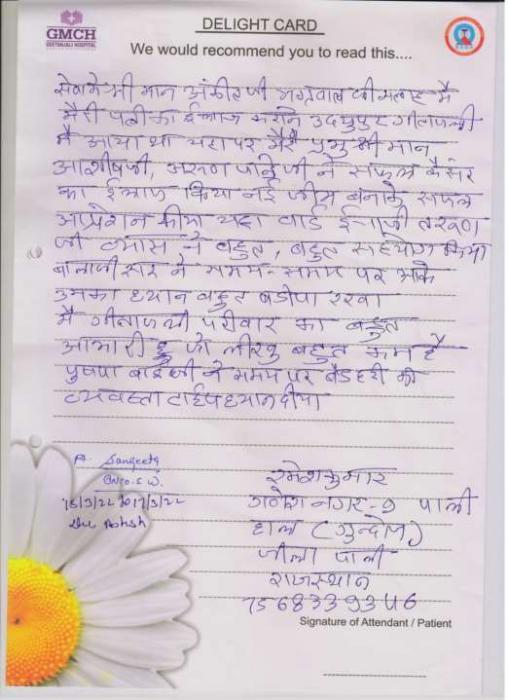 GMCH
GEETANJALI HOSPITAL
DELIGHT CARD
We would recommend you to read this....
सेवामे श्री मान अंकीत जी अग्रवाल की सलाह से
मेरी पत्नी का ईलाज कराने उदयपुर गीतांजली
मे आया था यहा पर मेरे प्रभु श्री मान
आशीषजी, अरूण पांडे जी ने सफल कैंसर
का ईलाज किया नई जीभ बनाके सफल
आप्रेशन कीया यहा वार्ड ईन्चार्ज तरूण
जी व्यास ने बहुत, बहुत सहयोग किया
बालाजी सर ने समय-समय पर आके
उनका ध्यान बहुत बडीया रखा
मै गीतांजली परीवार का बहुत
आभारी हु जो लीखु बहुत कम है
पुष्पा बाई जी ने समय पर बेड
व्यवस्ता टाईप ध्यान दीया
Pt. Sangeeta
Onco.S.W.
15/3/22 17/3/22
Dr Ashish
रमेश कुमार
गणेश नगर-9 पाली
हाल (गुन्दोज)
जीला पाली
राजस्थान
7568339346
Signature of Attendant / Patient